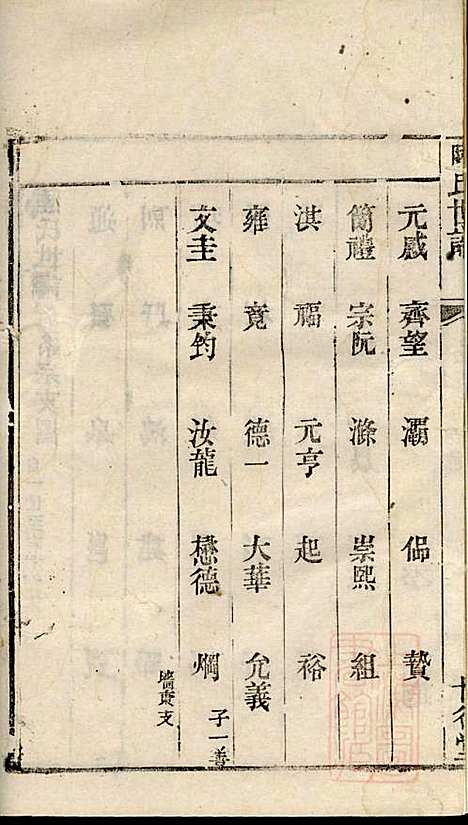 陳氏世譜
元感 齊望 灞 佋 贄
簡禮 宗阮 滌 崇熙 組
淇 福 元亨 起 裕
雍 竟 德一 大華 允義
文圭 秉鈞 汝龍 懋德 炯
子一善
墻東支